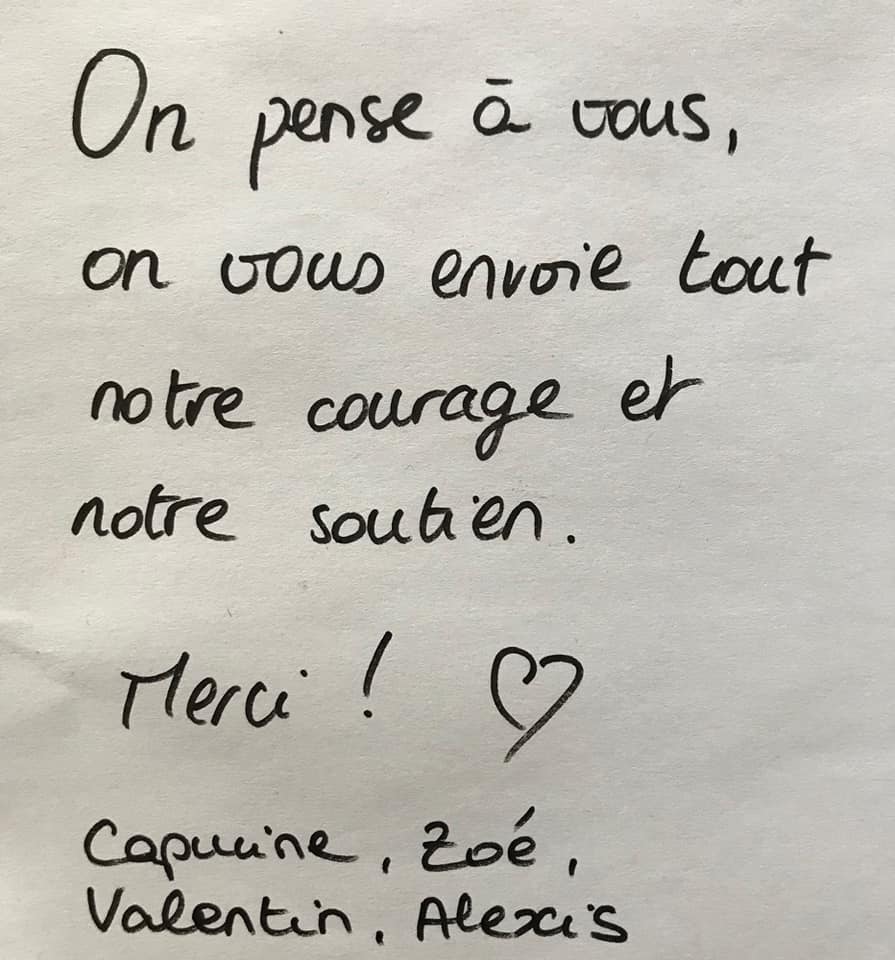 On pense à vous,
on vous envoie tout
notre courage et
notre soutien.
Merci ! ♡
Capucine, Zoé,
Valentin, Alexis